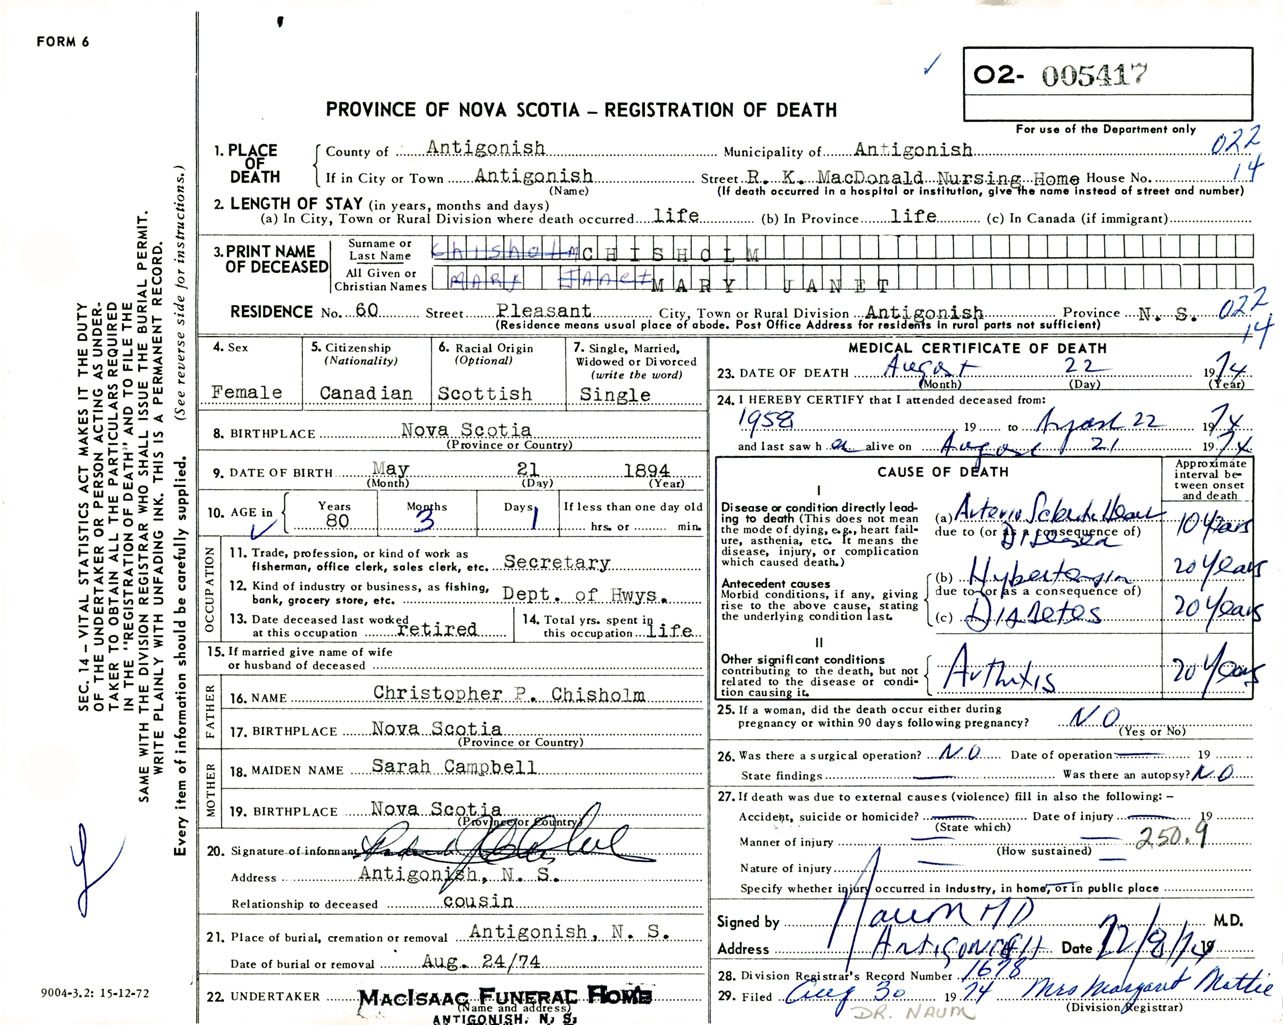 FORM 6
O2- 005417
For use of the Department only
PROVINCE OF NOVA SCOTIA – REGISTRATION OF DEATH
022
14
1. PLACE OF DEATH
County of Antigonish Municipality of Antigonish
If in City or Town Antigonish Street R. K. MacDonald Nursing Home House No.
(Name) (If death occurred in a hospital or institution, give the name instead of street and number)
2. LENGTH OF STAY (in years, months and days)
(a) In City, Town or Rural Division where death occurred life (b) In Province life (c) In Canada (if immigrant)
3. PRINT NAME OF DECEASED
Surname or Last Name Chisholm CHISHOLM
All Given or Christian Names MARY JANET MARY JANET
RESIDENCE No. 60 Street Pleasant City, Town or Rural Division Antigonish Province N. S. 022
14
(Residence means usual place of abode. Post Office Address for residents in rural parts not sufficient)
4. Sex
Female
5. Citizenship
(Nationality)
Canadian
6. Racial Origin
(Optional)
Scottish
7. Single, Married, Widowed or Divorced
(write the word)
Single
8. BIRTHPLACE Nova Scotia
(Province or Country)
9. DATE OF BIRTH May 21 1894
(Month) (Day) (Year)
10. AGE in
Years Months Days If less than one day old
80 3 1 hrs. or min.
OCCUPATION
11. Trade, profession, or kind of work as
fisherman, office clerk, sales clerk, etc. Secretary
12. Kind of industry or business, as fishing,
bank, grocery store, etc. Dept. of Hwys.
13. Date deceased last worked
at this occupation retired
14. Total yrs. spent in
this occupation life
15. If married give name of wife
or husband of deceased
FATHER
16. NAME Christopher P. Chisholm
17. BIRTHPLACE Nova Scotia
(Province or Country)
MOTHER
18. MAIDEN NAME Sarah Campbell
19. BIRTHPLACE Nova Scotia
(Province or Country)
20. Signature of informant
Address Antigonish, N. S.
Relationship to deceased cousin
21. Place of burial, cremation or removal Antigonish, N. S.
Date of burial or removal Aug. 24/74
22. UNDERTAKER MACISAAC FUNERAL HOME
(Name and address)
ANTIGONISH, N. S.
MEDICAL CERTIFICATE OF DEATH
23. DATE OF DEATH August 22 1974
(Month) (Day) (Year)
24. I HEREBY CERTIFY that I attended deceased from:
1958 19 to August 22 1974
and last saw h er alive on August 21 1974
CAUSE OF DEATH
Approximate interval between onset and death
I
Disease or condition directly leading to death (This does not
mean the mode of dying, e.g., heart failure, asthenia, etc. It means the
disease, injury, or complication
which caused death.)
(a) Arterio Sclerotic Heart Disease 10 Years
due to (or as a consequence of)
Antecedent causes
Morbid conditions, if any, giving
rise to the above cause, stating
the underlying condition last.
(b) Hypertension 20 Years
due to (or as a consequence of)
(c) Diabetes 20 Years
II
Other significant conditions
contributing to the death, but not
related to the disease or condition causing it.
Arthritis 20 Years
25. If a woman, did the death occur either during
pregnancy or within 90 days following pregnancy? NO
(Yes or No)
26. Was there a surgical operation? NO Date of operation 19
State findings Was there an autopsy? NO
27. If death was due to external causes (violence) fill in also the following: –
Accident, suicide or homicide? Date of injury 19
(State which)
Manner of injury 250.9
(How sustained)
Nature of injury
Specify whether injury occurred in industry, in home, or in public place
Signed by Naum MD M.D.
Address ANTIGONISH Date 22/8/74 19
28. Division Registrar's Record Number 1678
29. Filed Aug 30 1974 Mrs Margaret Mattie
(Division Registrar)
DR. NAUM
SEC. 14 – VITAL STATISTICS ACT MAKES IT THE DUTY
OF THE UNDERTAKER OR PERSON ACTING AS UNDER-
TAKER TO OBTAIN ALL THE PARTICULARS REQUIRED
IN THE "REGISTRATION OF DEATH" AND TO FILE THE
SAME WITH THE DIVISION REGISTRAR WHO SHALL ISSUE THE BURIAL PERMIT.
WRITE PLAINLY WITH UNFADING INK. THIS IS A PERMANENT RECORD.
Every item of information should be carefully supplied. (See reverse side for instructions.)
9004-3.2: 15-12-72